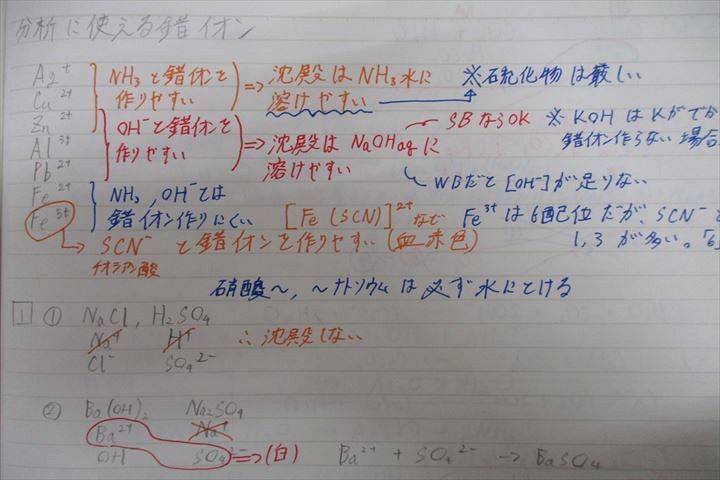 分析に使える錯イオン
Ag⁺
Cu²⁺
Zn²⁺
Al³⁺
Pb²⁺
Fe²⁺
Fe³⁺
NH₃と錯イオンを
作りやすい
⇒ 沈殿はNH₃水に
溶けやすい
※硫化物は厳しい
OH⁻と錯イオンを
作りやすい
⇒ 沈殿はNaOHaqに
溶けやすい
SBならOK
※ KOHはKがでか
錯イオン作らない場合
WBだと[OH⁻]が足りない
NH₃, OH⁻では
錯イオン作りにくい
[Fe(SCN)]²⁺など
Fe³⁺は6配位だが、SCN⁻
1,3が多い。「6
→ SCN⁻ と錯イオンを作りやすい(血赤色)
チオシアン酸
硝酸〜,〜ナトリウムは必ず水にとける
1 ① NaCl, H₂SO₄
Na⁺ H⁺
Cl⁻ SO₄²⁻
∴沈殿しない
② Ba(OH)₂ Na₂SO₄
Ba²⁺ Na⁺
OH SO₄²⁻ ⇒(白) Ba²⁺ + SO₄²⁻ → BaSO₄